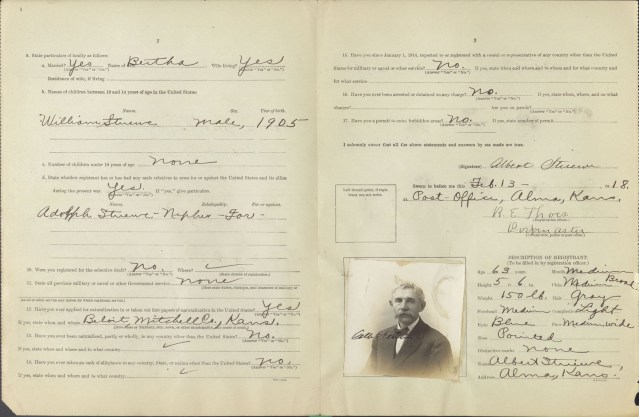 2
8. State particulars of family as follows:
a. Married? Yes Name of Bertha Wife living? Yes
(Answer "Yes" or "No.") (Answer "Yes" or "No.")
Residence of wife, if living
b. Names of children between 10 and 14 years of age in the United States:
Name. Sex. Year of birth.
William Struwe Male, 1905
c. Number of children under 10 years of age none
d. State whether registrant has or had any male relatives in arms for or against the United States and its allies
during the present war: Yes. If "yes," give particulars.
Name. Relationship. For or against.
Adolph Struwe - Nephew - For -
10. Were you registered for the selective draft? No. Where?
(Answer "Yes" or "No.")
11. State all previous military or naval or other Government service: none
12. Have you ever applied for naturalization or taken out first papers of naturalization in the United States? Yes
If yes, state when and where Beloit Mitchell Co, Kans.
13. Have you ever been naturalized, partly or wholly, in any country other than the United States? No.
If yes, state when and where and in what country
14. Have you ever taken an oath of allegiance to any country, State, or nation other than the United States? no.
If yes, state when and where and to what country
3
15. Have you since January 1, 1914, reported to or registered with a consul or representative of any country other than the United
States for military or naval or other service? no. If yes, state when and where and to whom and for what country and
for what service
16. Have you ever been arrested or detained on any charge? no. If yes, state when, where, and on what
charge? Are you on parole?
17. Have you a permit to enter forbidden areas? No. If yes, state number of permit
I solemnly swear that all the above statements and answers by me made are true.
(Signature) Albert Struwe
Left thumb print, if right
thumb can not be taken
Sworn to before me this Feb. 13 - 18.
at Post-Office, Alma, Kans.
Postmaster
DESCRIPTION OF REGISTRANT.
(To be filled in by registration officer.)
Age 63 years Mouth Medium
Height 5 ft. 6 in. Chin Medium Broad
Weight 150 lb. Hair Gray
Forehead Medium Complexion Light
Eyes Blue Face Medium wide
Nose Pointed
Distinctive marks none
Name Albert Struwe,
Address Alma, Kans.